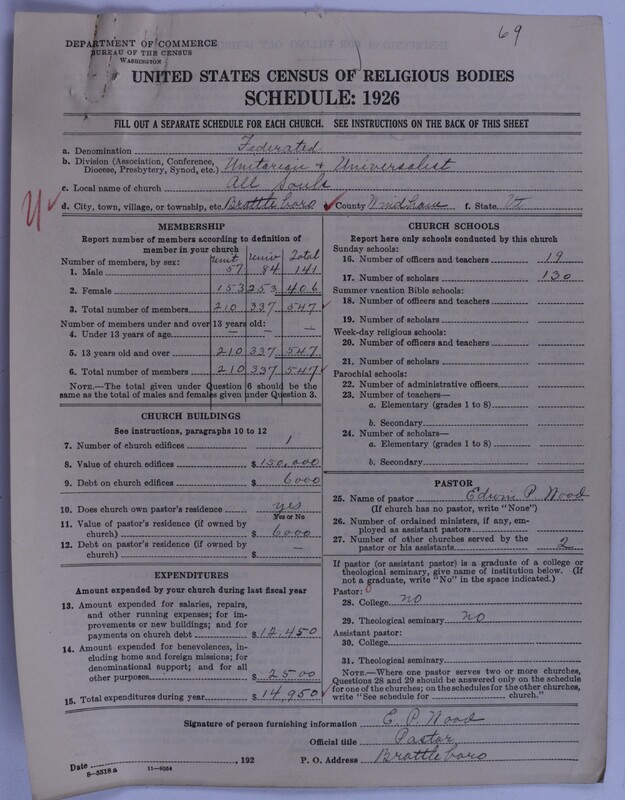 69
DEPARTMENT OF COMMERCE
BUREAU OF THE CENSUS
WASHINGTON
UNITED STATES CENSUS OF RELIGIOUS BODIES
SCHEDULE: 1926
FILL OUT A SEPARATE SCHEDULE FOR EACH CHURCH. SEE INSTRUCTIONS ON THE BACK OF THIS SHEET
a. Denomination Federated
b. Division (Association, Conference,
Diocese, Presbytery, Synod, etc.) Unitarian & Universalist
c. Local name of church All Souls
d. City, town, village, or township, etc. Brattleboro e. County Windham f. State Vt
MEMBERSHIP
Report number of members according to definition of
member in your church
Unit Univ Total
Number of members, by sex:
1. Male 57 84 141
2. Female 153 253 406
3. Total number of members 210 337 547
Number of members under and over 13 years old:
4. Under 13 years of age — — —
5. 13 years old and over 210 337 547
6. Total number of members 210 337 547
NOTE.—The total given under Question 6 should be the
same as the total of males and females given under Question 3.
CHURCH BUILDINGS
See instructions, paragraphs 10 to 12
7. Number of church edifices 1
8. Value of church edifices $ 150,000
9. Debt on church edifices $ 6000
10. Does church own pastor's residence yes
Yes or No
11. Value of pastor's residence (if owned by
church) $ 6000
12. Debt on pastor's residence (if owned by
church) $ —
EXPENDITURES
Amount expended by your church during last fiscal year
13. Amount expended for salaries, repairs,
and other running expenses; for im-
provements or new buildings; and for
payments on church debt $ 12,450
14. Amount expended for benevolences, in-
cluding home and foreign missions; for
denominational support; and for all
other purposes $ 2500
15. Total expenditures during year $ 14,950
CHURCH SCHOOLS
Report here only schools conducted by this church
Sunday schools:
16. Number of officers and teachers 19
17. Number of scholars 130
Summer vacation Bible schools:
18. Number of officers and teachers
19. Number of scholars
Week-day religious schools:
20. Number of officers and teachers
21. Number of scholars
Parochial schools:
22. Number of administrative officers
23. Number of teachers—
a. Elementary (grades 1 to 8)
b. Secondary
24. Number of scholars—
a. Elementary (grades 1 to 8)
b. Secondary
PASTOR
25. Name of pastor Edwin P. Wood
(If church has no pastor, write "None")
26. Number of ordained ministers, if any, em-
ployed as assistant pastors
27. Number of other churches served by the
pastor or his assistants 2
If pastor (or assistant pastor) is a graduate of a college or
theological seminary, give name of institution below. (If
not a graduate, write "No" in the space indicated.)
Pastor:
28. College no
29. Theological seminary no
Assistant pastor:
30. College
31. Theological seminary
NOTE.—Where one pastor serves two or more churches,
Questions 28 and 29 should be answered only on the schedule
for one of the churches; on the schedules for the other churches,
write "See schedule for church."
Signature of person furnishing information E. P. Wood
Official title Pastor
Date , 192 P. O. Address Brattleboro
8-5318a 11-9054